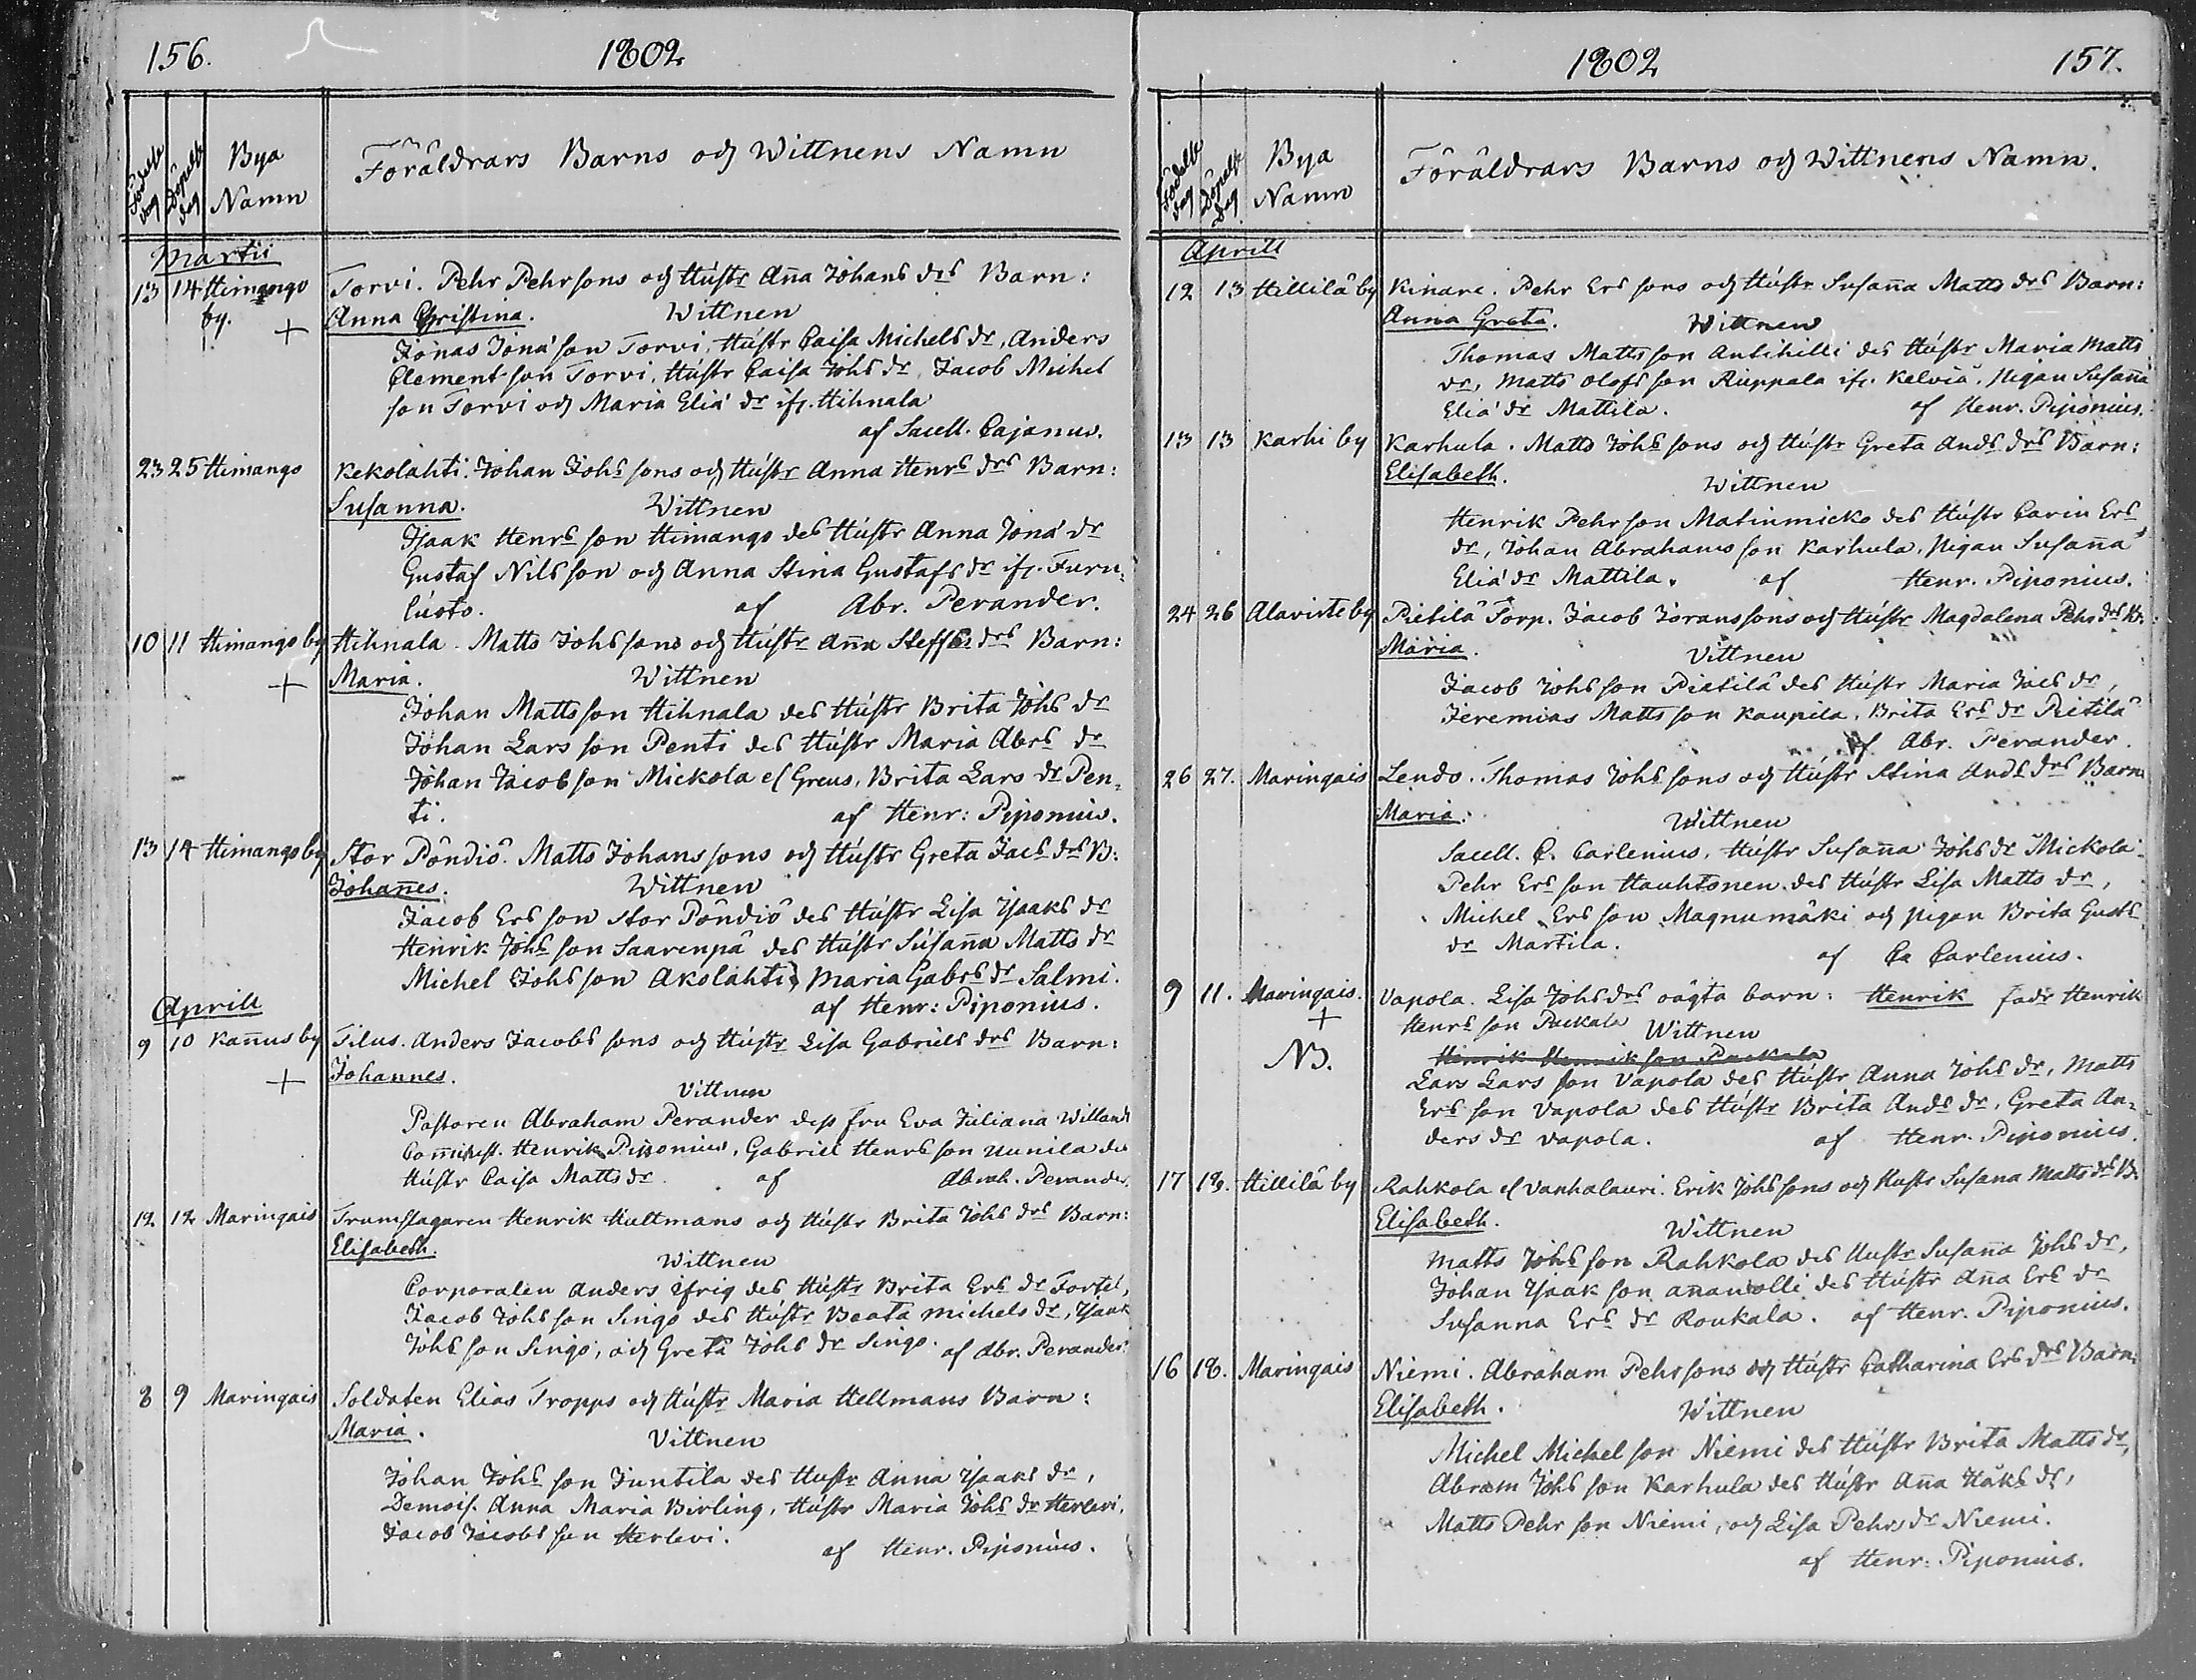 156.
1802
Födelse dag
Döpelse dag
Bya Namn
Föräldrars Barns och Wittnens Namn
Martii
13 14 Himango by. + Torvi. Pehr Pehrsons och Hustr Anna Johans drs Barn:
Anna Christina. Wittnen
Jonas Jona son Torvi, Hustr Caisa Michels dr, Anders
Clement son Torvi, Hustr Caisa Johs dr, Jacob Michel
son Torvi och Maria Elia dr ifr. Hihnala
af Sacell. Cajanus.
23 25 Himango Kekolahti. Johan Johs sons och Hustr Anna Henrs drs Barn:
Susanna. Wittnen
Isaak Henrs son Himango des Hustr Anna Jona dr
Gustaf Nils son och Anna Stina Gustafs dr ifr. Furu-
lusto. af Abr. Perander.
10 11 Himango by Hihnala. Matts Johs sons och Hustr Anna Steffs drs Barn:
+ Maria. Wittnen
Johan Matts son Hihnala des Hustr Brita Johs dr
Johan Lars son Penti des Hustr Maria Abrs dr
Johan Jacob son Mickola el Greus, Brita Lars dr Pen-
ti. af Henr: Piponius.
13 14 Himango by Stor Pöndiö. Matts Johans sons och Hustr Greta Jacs drs B:
Johannes. Wittnen
Jacob Ers son Stor Pöndiö des Hustr Lisa Isaaks dr
Henrik Johs son Saarenpä des Hustr Susanna Matts dr
Michel Johs son Akolahti, Maria Gabrs dr Salmi.
af Henr: Piponius.
Aprill
9 10 Kannus by Tilus. Anders Jacobs sons och Hustr Lisa Gabriels drs Barn:
+ Johannes.
Vittnen
Pastoren Abraham Perander dess fru Eva Juliana Willand
Henrik Piponius, Gabriel Henrs son Uunila des
Hustr Caisa Matts dr. af Abrah. Perander.
12 12 Maringais Trumslagaren Henrik Hultmans och Hustr Brita Johs drs Barn:
Elisabeth. Wittnen
Corporalen Anders Ifrig des Hustr Brita Ers dr Fortel,
Jacob Johs son Singo des Hustr Beata Michels dr, Isaak
Johs son Singo, och Greta Johs dr Singo. af Abr. Perander.
8 9 Maringais Soldaten Elias Tropps och Hustr Maria Hellmans Barn:
Maria. Vittnen
Johan Johs son Juntila des Hustr Anna Isaaks dr,
Demois. Anna Maria Birling, Hustr Maria Johs dr Herlevi,
Jacob Jacobs son Herlevi. af Henr. Piponius.
1802
157.
Födelse dag
Döpelse dag
Bya Namn
Föräldrars Barns och Wittnens Namn.
Aprill
12 13 Hillilä by Kinare. Pehr Ers sons och Hustr Susanna Matts drs Barn:
Anna Greta. Wittnen
Thomas Matts son Antihilli des Hustr Maria Matts
dr, Matts Olofs son Riippala ifr. Kelviå, Pigan Susanna
Elia dr Mattila. af Henr. Piponius.
13 13 Karhi by Karhula. Matts Johs sons och Hustr Greta Ands drs Barn:
Elisabeth. Wittnen
Henrik Pehr son Matinmicko des Hustr Carin Ers
dr, Johan Abrahams son Karhula, Pigan Susanna
Elia dr Mattila. af Henr. Piponius.
24 26 Alavirte by Pietilä Torp. Jacob Joranssons och Hustr Magdalena Pehrs drs B:
Maria. Vittnen
Jacob Johs son Pietilä des Hustr Maria Jacs dr,
Jeremias Matts son Kaupila, Brita Ers dr Pietilä
af Abr. Perander.
26 27. Maringais Lendo. Thomas Johs sons och Hustr Stina Ands drs Barn
Maria. Wittnen
Sacell. C. Carlenius, Hustr Susanna Johs dr Mickola.
Pehr Ers son Hauhtonen des Hustr Lisa Matts dr,
Michel Ers son Magnumäki och Pigan Brita Gusts
dr Martila. af Ca Carlenius.
9 11. Maringais. Vapola. Lisa Johs drs oägta barn: Henrik fadr Henrik
+ Henrs son Puckala Wittnen
NB. Henrik Henrik son Puckala
Lars Lars son Vapola des Hustr Anna Johs dr, Matts
Ers son Vapola des Hustr Brita Ands dr, Greta An-
ders dr Vapola. af Henr. Piponius.
17 18. Hillilä by Rahkola el Vanhalauri. Erik Johs sons och Hustr Susana Matts drs B:
Elisabeth. Wittnen
Matts Johs son Rahkola des Hustr Susanna Johs dr,
Johan Isaak son Ananolli des Hustr Anna Ers dr
Susanna Ers dr Roukala. af Henr. Piponius.
16 18. Maringais Niemi. Abraham Pehrsons och Hustr Catharina Ers drs Barn:
Elisabeth. Wittnen
Michel Michel son Niemi des Hustr Brita Matts dr,
Abram Johs son Karhula des Hustr Anna Håks dr,
Matts Pehr son Niemi, och Lisa Pehrs dr Niemi.
af Henr: Piponius.